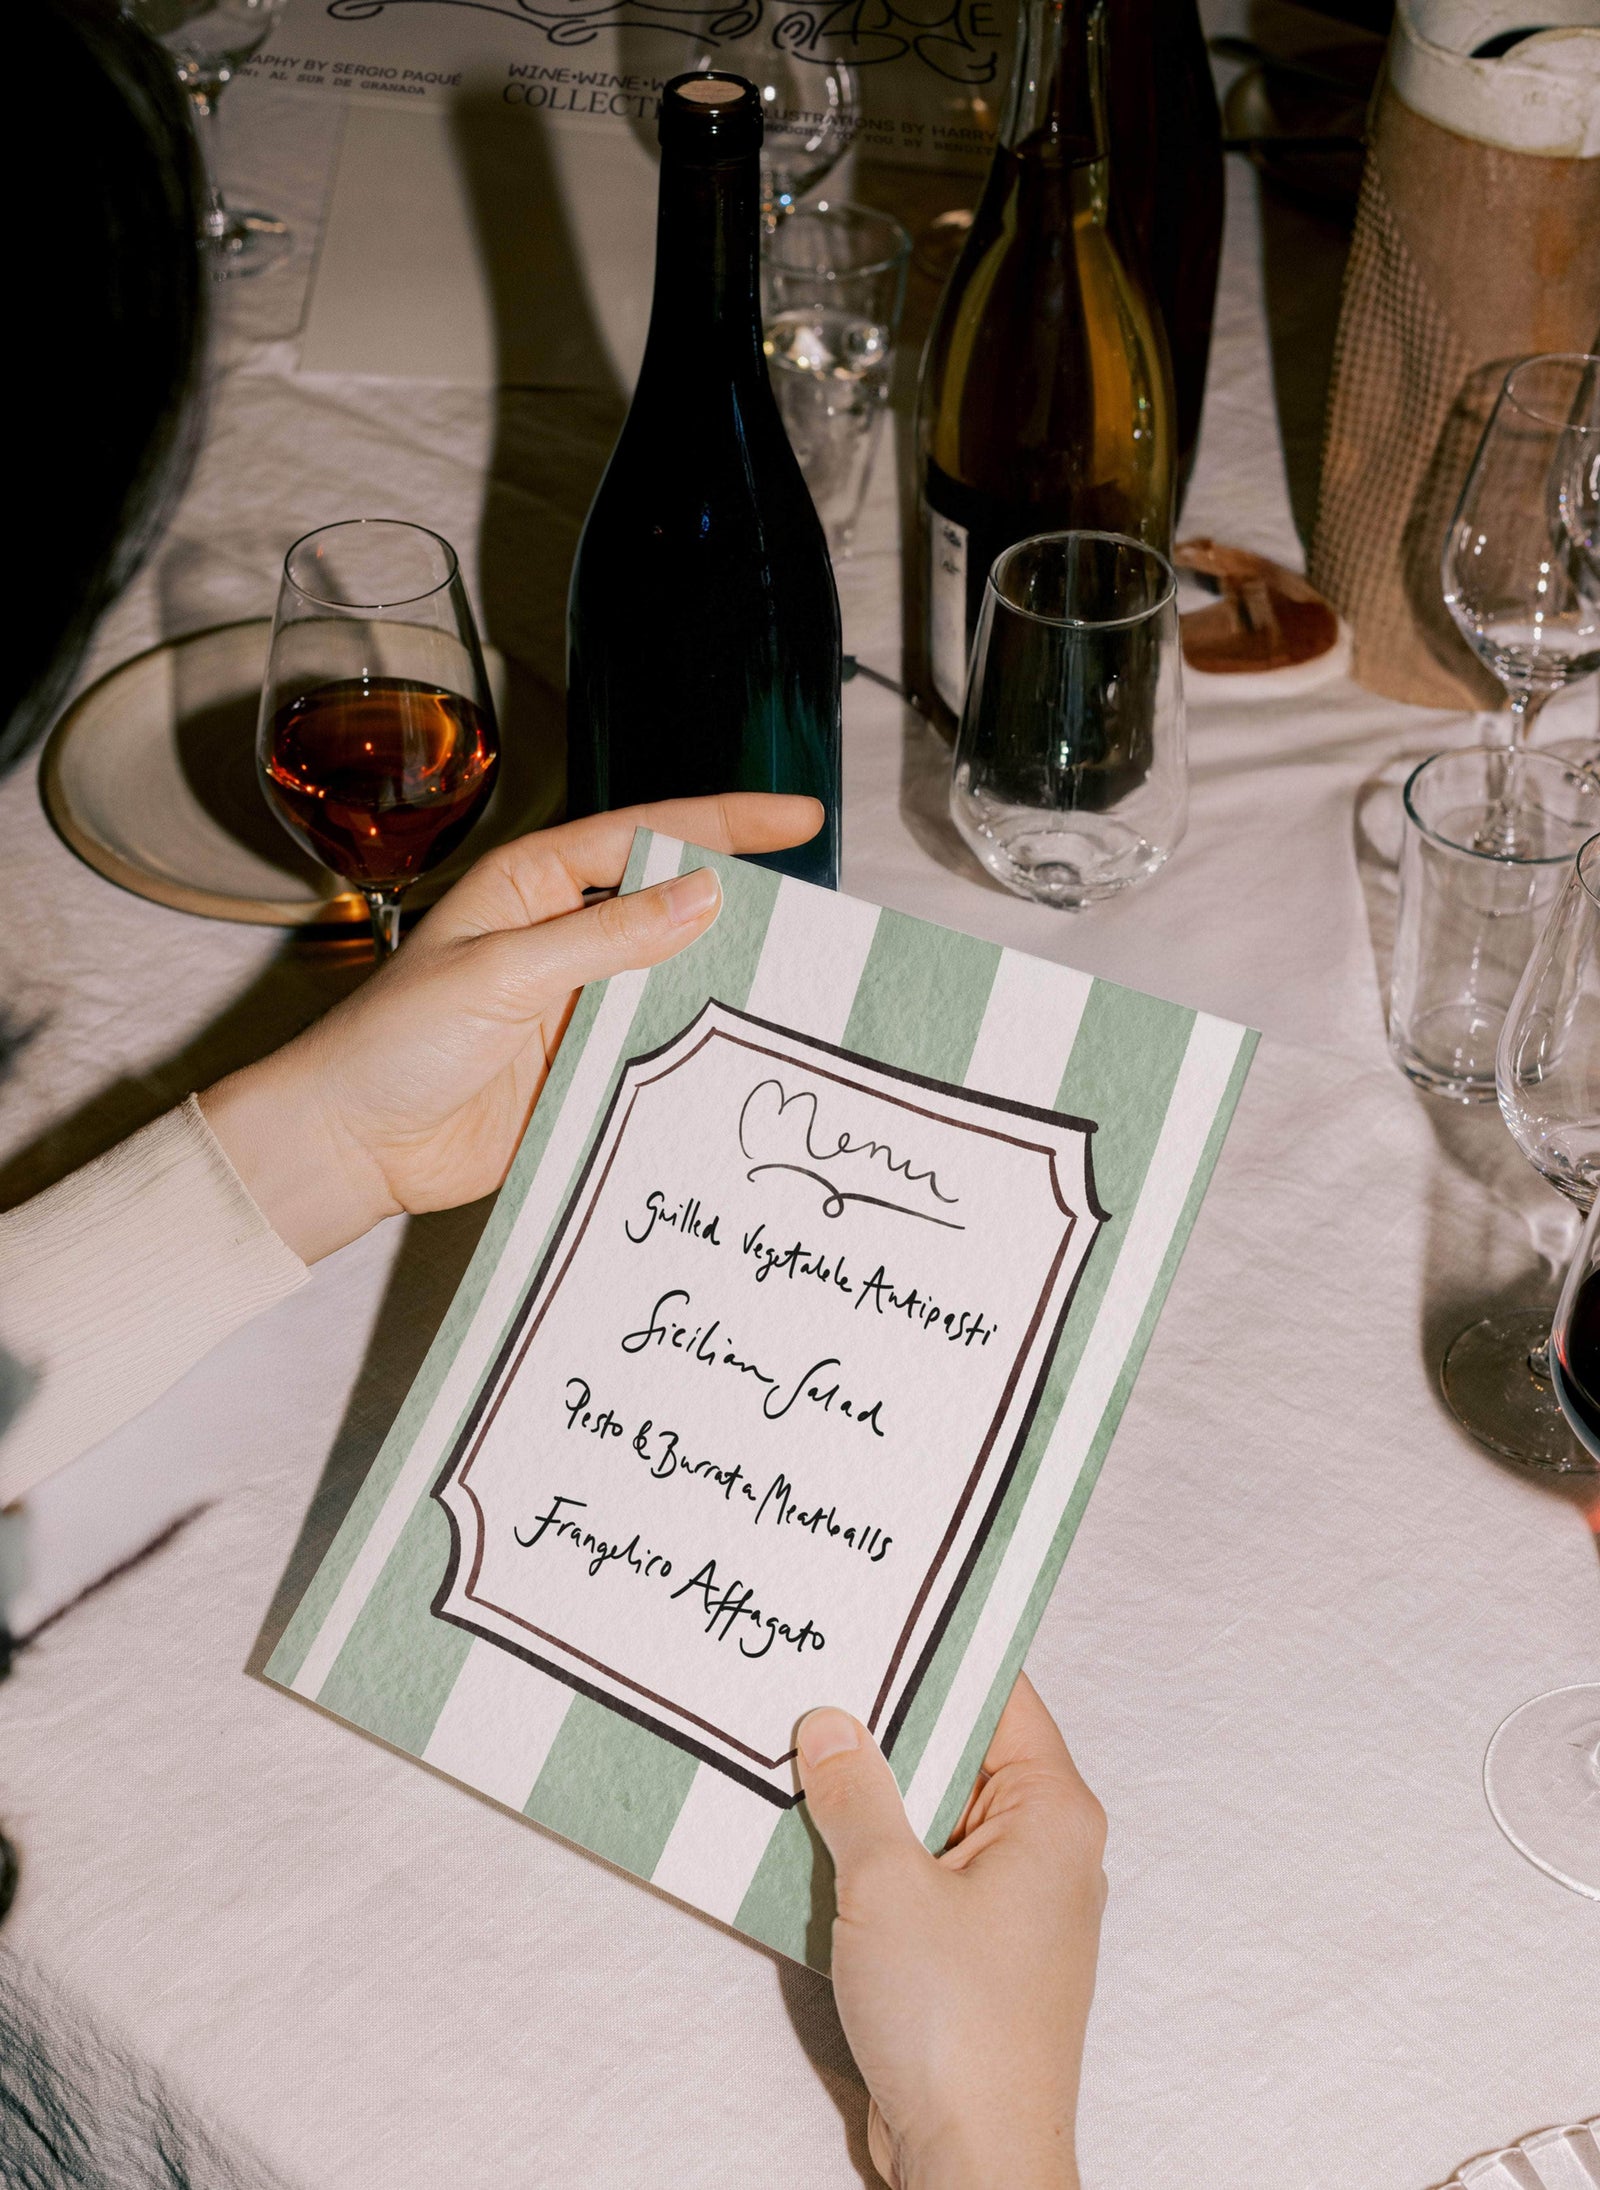 APHY BY SERGIO PAQUÉ
ON: AL SUR DE GRANADA
WINE•WINE•W
COLLECTI
LUSTRATIONS BY HARRY
ROUGHT TO YOU BY
Menu
Grilled Vegetable Antipasti
Sicilian Salad
Pesto & Burrata Meatballs
Frangelico Affogato